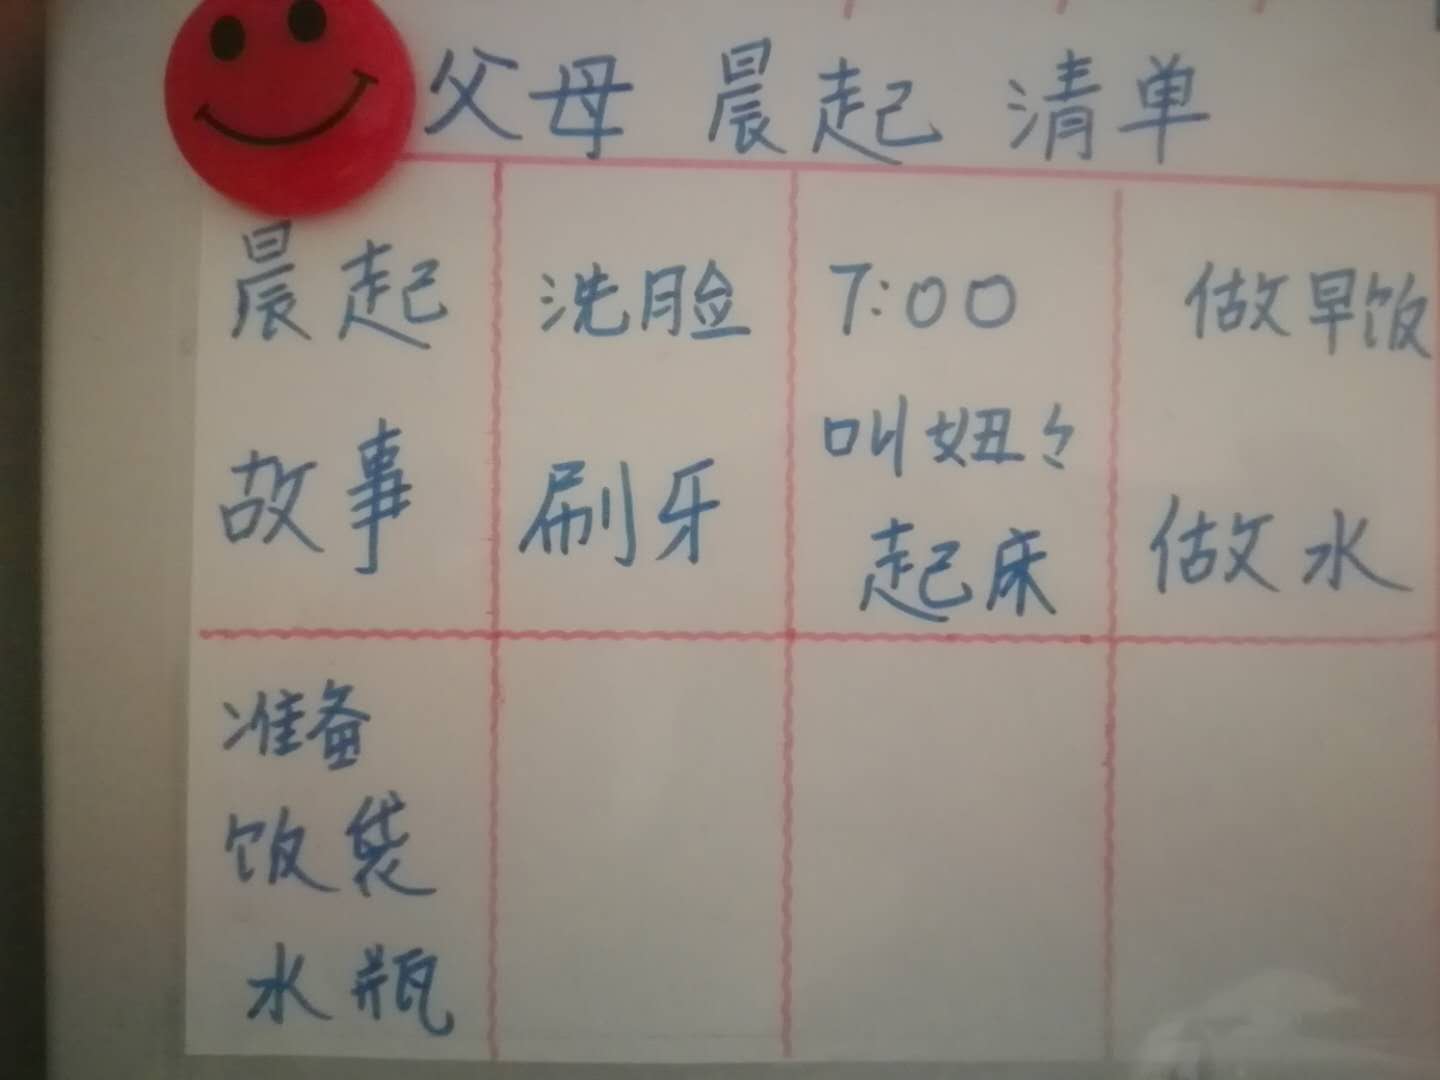 父母 晨起 清单
晨起
故事
洗脸
刷牙
7:00
叫妞々
起床
做早饭
做水
准备
饭袋
水瓶